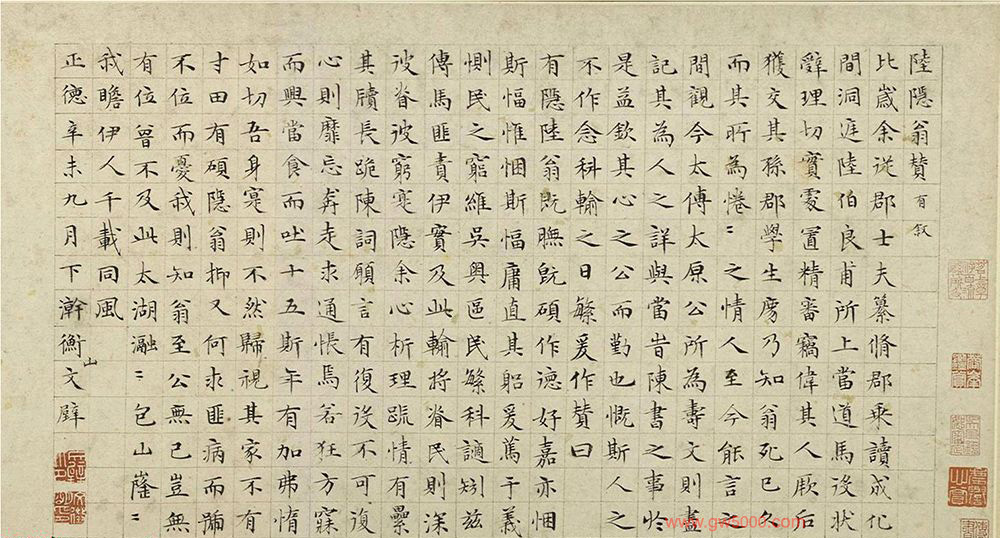 陸隱翁贊有敘
比歲余從郡士夫纂脩郡乘讀成化
間洞逕陸伯良甫所上當道馬役狀
辭理切實處置精審竊偉其人厥后
獲交其孫郡學生雩乃知翁死已久
而其所為惓〻之情人至今能言之
間觀今太傅太原公所為壽文則盡
記其為人之詳與當旹陳書之事於
是益欽其心之公而勤也慨斯人之
不作念科輸之日繁爰作贊曰
有隱陸翁旣膴旣碩作德好嘉亦悃
斯愊惟悃斯愊庸直其躬爰篤于義
惻民之窮維吳奧區民繁科讁矧茲
傳馬匪責伊實及此輸將眷民則深
彼眷彼窮寔隱余心析理䟽情有纍
其牘長跪陳詞願言有復役不可復
心則靡忘奔走求通悵焉若狂方寐
而興當食而吐十五斯年有加弗惰
如切吾身寔則不然歸視其家不有
寸田有碩隱翁抑又何求匪病而痡
不位而憂我則知翁至公無已豈無
有位曾不及此太湖瀜〻包山蓬〻
我瞻伊人千載同風
正德辛未九月下澣衡山文壁
www.gw5000.com